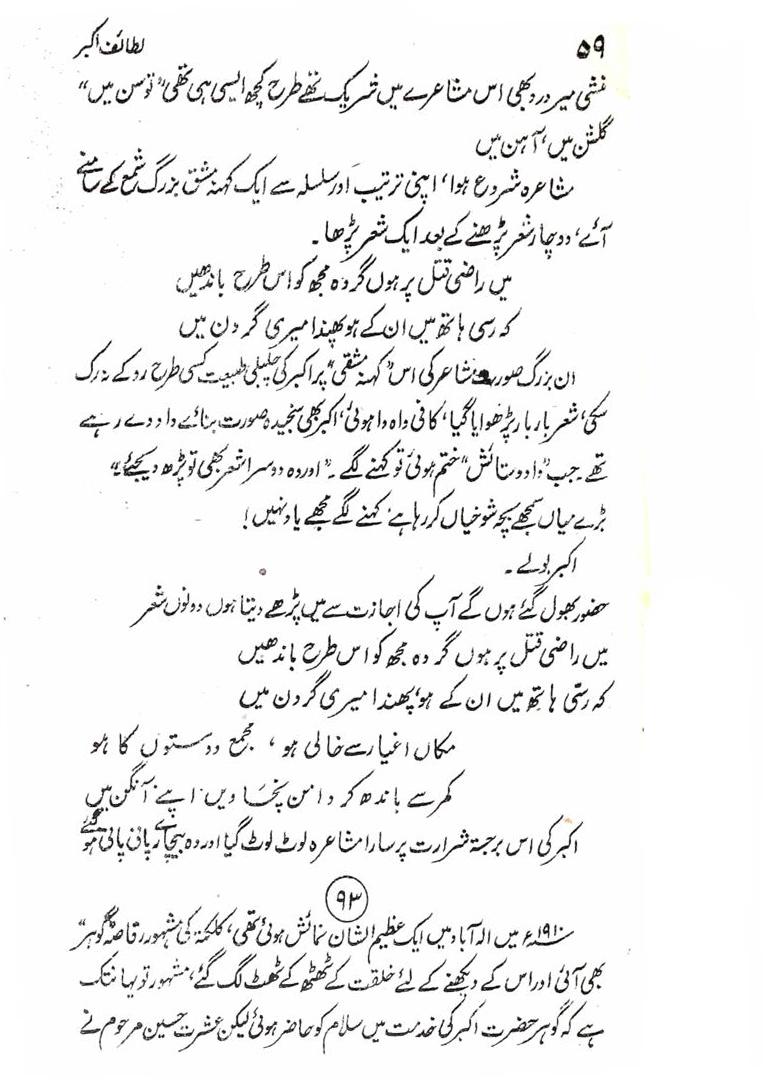 ۵۹ لطائف اکبر
منشی میر درد بھی اس مشاعرے میں شریک تھے طرح کچھ ایسی ہی تھی "توسن میں"
گلشن میں، آہن میں
مشاعرہ شروع ہوا، اپنی ترتیب اور سلسلہ سے ایک کہنہ مشق بزرگ شمع کے سامنے
آئے، دو چار شعر پڑھنے کے بعد ایک شعر پڑھا۔
میں راضی قتل پر ہوں گر وہ مجھ کو اس طرح باندھیں
کہ رسی ہاتھ میں ان کے ہو پھندا میری گردن میں
ان بزرگ صورت شاعر کی اس "کہنہ مشقی" پر اکبر کی چلبلی طبیعت کسی طرح روکے نہ رک
سکی، شعر بار بار پڑھوایا گیا، کافی واہ وا ہوئی، اکبر بھی سنجیدہ صورت بنائے داد دے رہے
تھے۔ جب "داد و ستائش" ختم ہوئی تو کہنے لگے۔ "اور وہ دوسرا شعر بھی تو پڑھ دیجئے"
بڑے میاں سمجھے بچہ شوخیاں کر رہا ہے، کہنے لگے مجھے یاد نہیں!
اکبر بولے۔
حضور بھول گئے ہوں گے آپ کی اجازت سے میں پڑھے دیتا ہوں دونوں شعر
میں راضی قتل پر ہوں گر وہ مجھ کو اس طرح باندھیں
کہ رسّی ہاتھ میں ان کے ہو، پھندا میری گردن میں
مکاں اغیار سے خالی ہو، مجمع دوستوں کا ہو
کمر سے باندھ کر دامن نچاویں اپنے آنگن میں
اکبر کی اس برجستہ شرارت پر سارا مشاعرہ لوٹ لوٹ گیا اور وہ بیچارے پانی پانی ہو گئے
۹۳
۱۹۱۰ء میں الہ آباد میں ایک عظیم الشان نمائش ہوئی تھی، کلکتہ کی مشہور رقاصہ "گوہر"
بھی آئی اور اس کے دیکھنے کے لئے خلقت کے ٹھٹھ کے ٹھٹ لگ گئے، مشہور تو یہانتک
ہے کہ گوہر حضرت اکبر کی خدمت میں سلام کو حاضر ہوئی لیکن عشرت حسین مرحوم نے